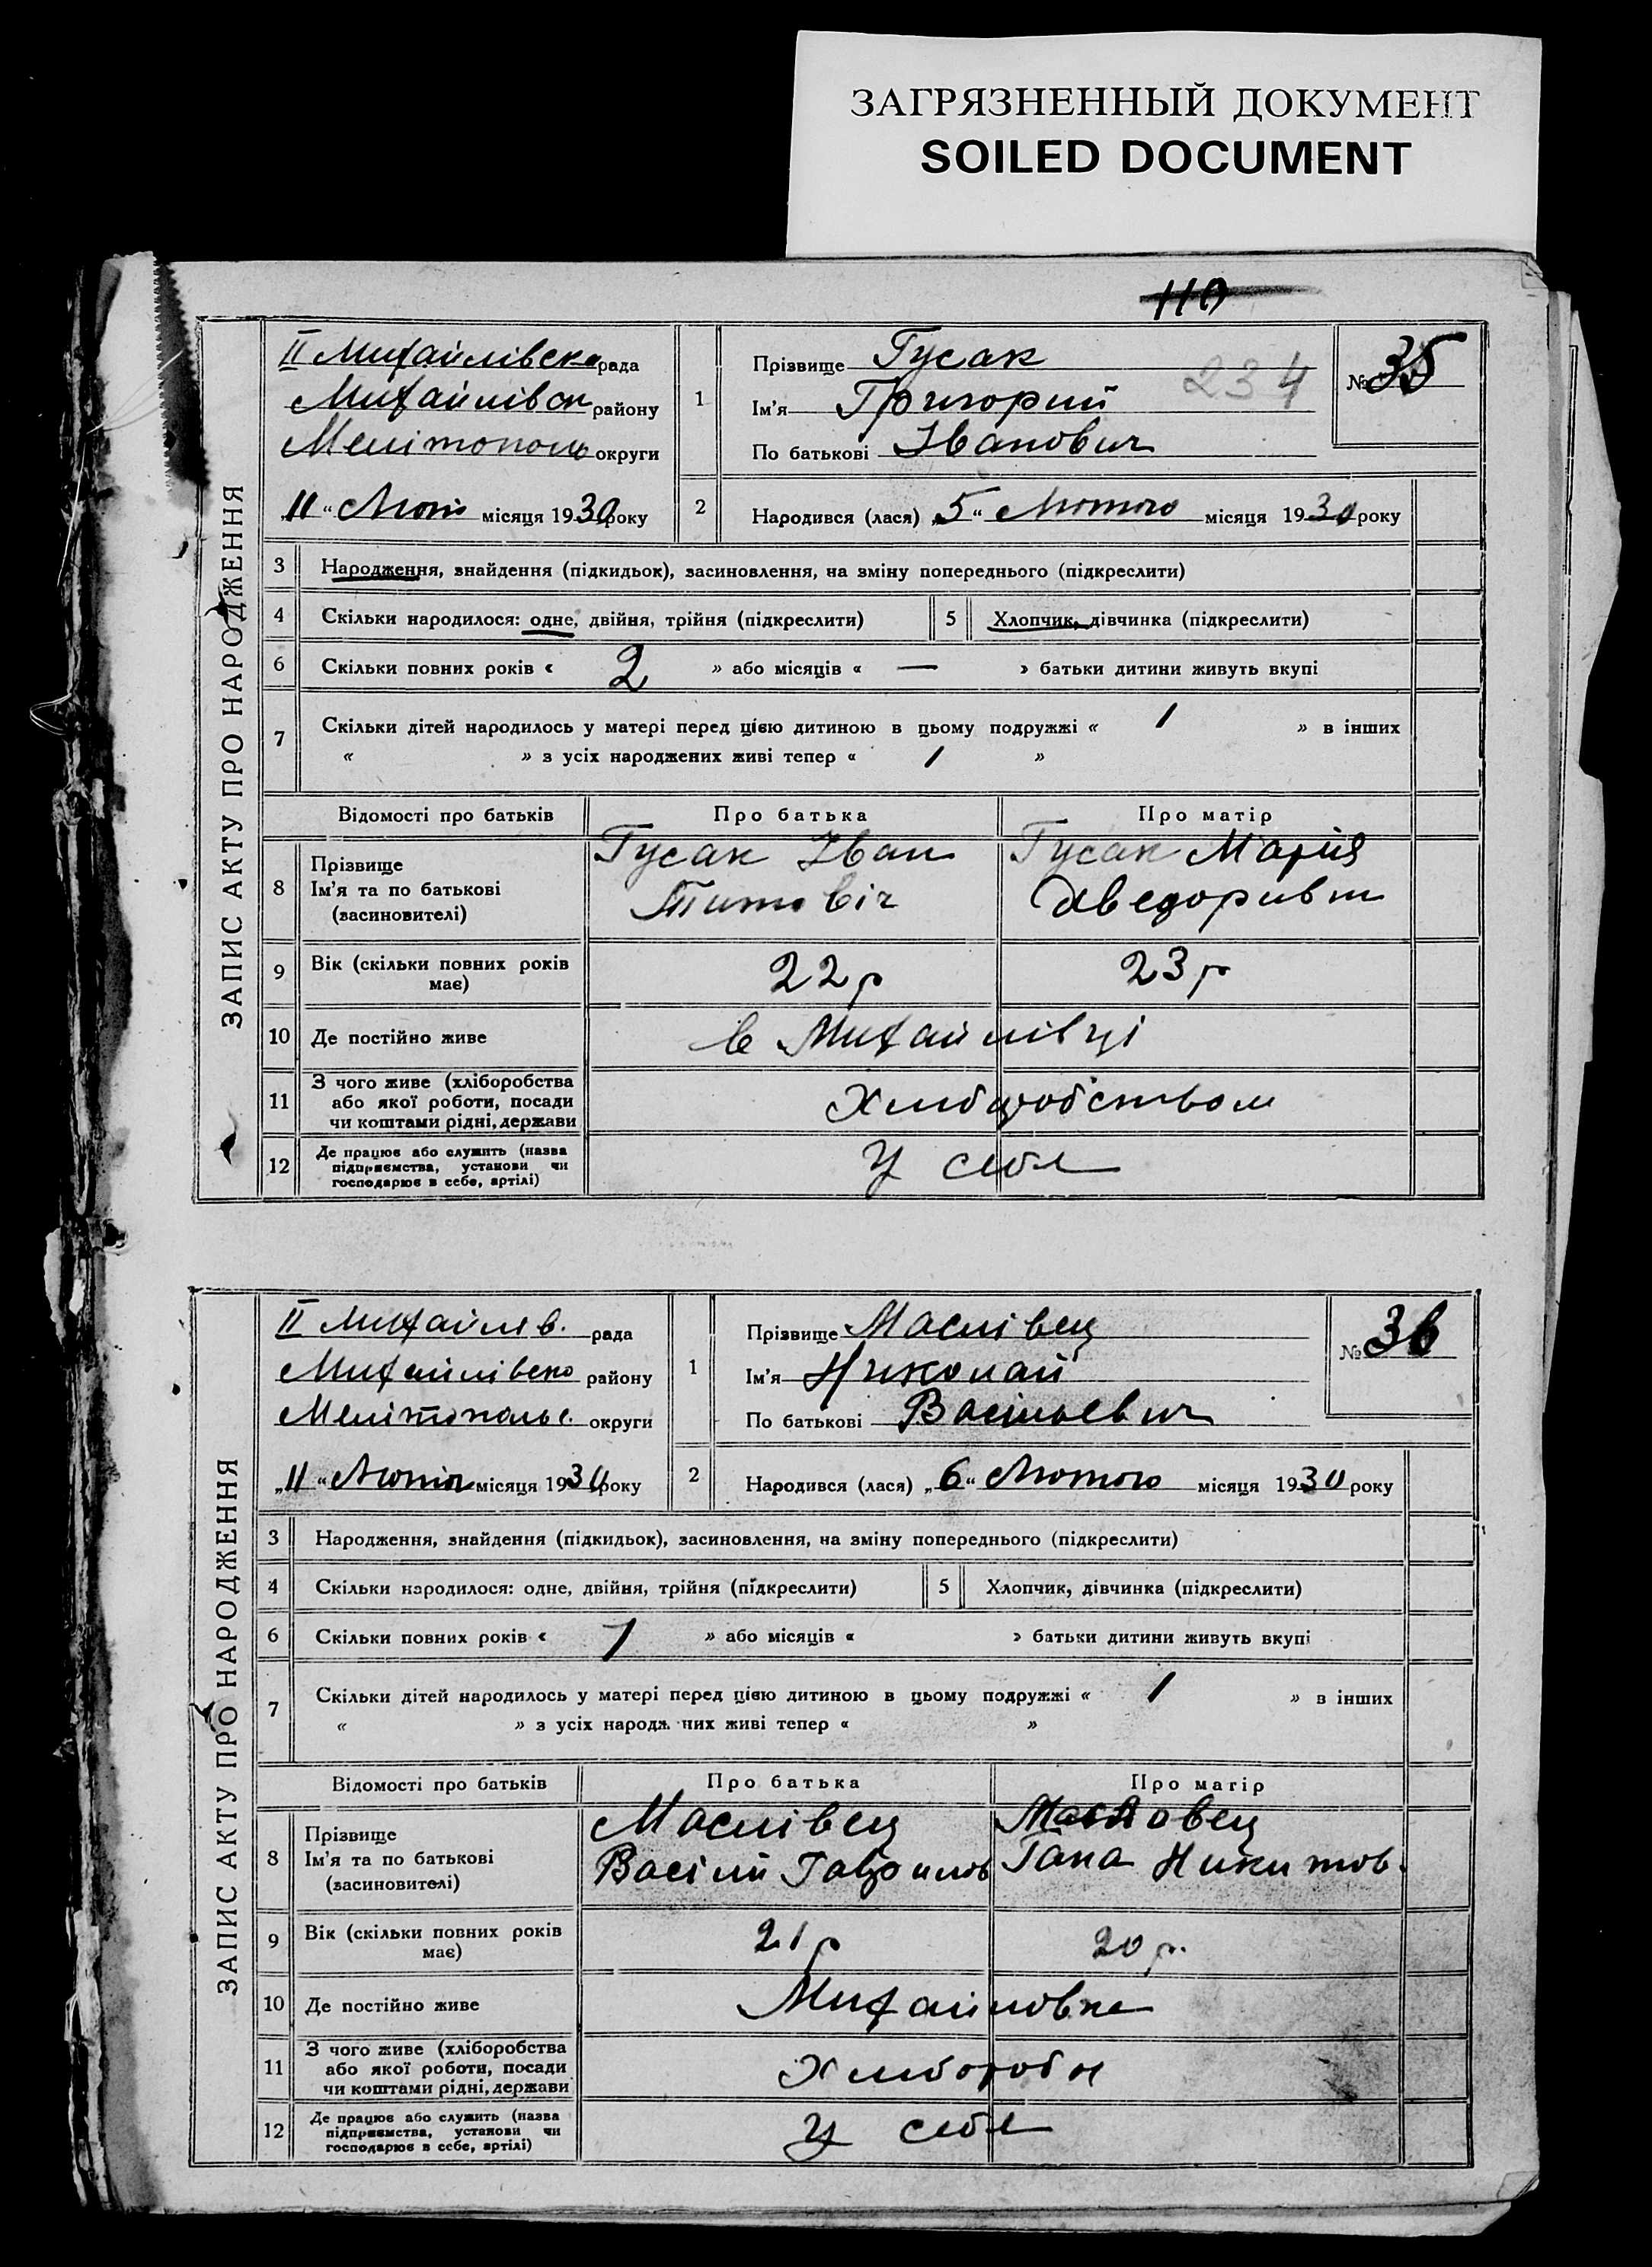 ЗАГРЯЗНЕННЫЙ ДОКУМЕНТ
SOILED DOCUMENT
110
ЗАПИС АКТУ ПРО НАРОДЖЕННЯ
II Михайлівска рада
Михайлівск району
Мелітополь округи
„11“ Лютог місяця 1930 року
1
Прізвище Гусак
Ім’я Григорий
234
По батькові Іванович
№ 35
2 Народився (лася) „5“ Лютого місяця 1930 року
3 Народження, знайдення (підкидьок), засиновлення, на зміну попереднього (підкреслити)
4 Скільки народилося: одне, двійня, трійня (підкреслити) 5 Хлопчик, дівчинка (підкреслити)
6 Скільки повних років « 2 » або місяців « — » батьки дитини живуть вкупі
7 Скільки дітей народилось у матері перед цією дитиною в цьому подружжі « 1 » в інших
« » з усіх народжених живі тепер « 1 »
Відомості про батьків Про батька Про матір
8 Прізвище
Ім’я та по батькові
(засиновителі)
Гусак Іван
Титовіч
Гусак Марія
9 Вік (скільки повних років
має)
22 р 23 р
10 Де постійно живе в Михайлівці
11 З чого живе (хліборобства
або якої роботи, посади
чи коштами рідні, держави
Хлиборобством
12 Де працює або служить (назва
підприємства, установи чи
господарює в себе, артілі)
У себя
ЗАПИС АКТУ ПРО НАРОДЖЕННЯ
II Михайлів. рада
Михайлівско району
Мелітопольс. округи
„11“ Лютог місяця 1930 року
1
Прізвище Маслівец
Ім’я Николай
По батькові Васильевич
№ 36
2 Народився (лася) „6“ Лютого місяця 1930 року
3 Народження, знайдення (підкидьок), засиновлення, на зміну попереднього (підкреслити)
4 Скільки народилося: одне, двійня, трійня (підкреслити) 5 Хлопчик, дівчинка (підкреслити)
6 Скільки повних років « 1 » або місяців « » батьки дитини живуть вкупі
7 Скільки дітей народилось у матері перед цією дитиною в цьому подружжі « 1 » в інших
« » з усіх народж них живі тепер « »
Відомості про батьків Про батька Про матір
8 Прізвище
Ім’я та по батькові
(засиновителі)
Маслівец
Васілій Гаврилов
Масловец
Гана Никитов.
9 Вік (скільки повних років
має)
21 р 20 р.
10 Де постійно живе Михайловке
11 З чого живе (хліборобства
або якої роботи, посади
чи коштами рідні, держави
Хлибороби
12 Де працює або служить (назва
підприємства, установи чи
господарює в себе, артілі)
У себя